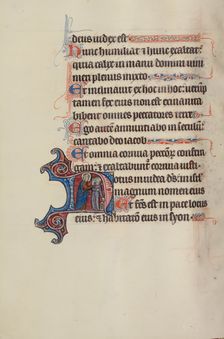 deus iudex est
Hunc humiliat ⁊ hunc exaltat:
quia calix in manu domini uini
meri plenus mixto
Et inclinauit ex hoc in hoc: ueru
tamen fex eius non est exinanita
bibent omnes peccatores
Ego autem annunciabo in seculum
cantabo deo iacob
Et omnia cornua confrin
gam: ⁊ exaltabunt cornua iusti
Notus in iudea ds: in isrl
magnum nomen eius
Et est in pace locus
eius: ⁊ habitatio eius in syon